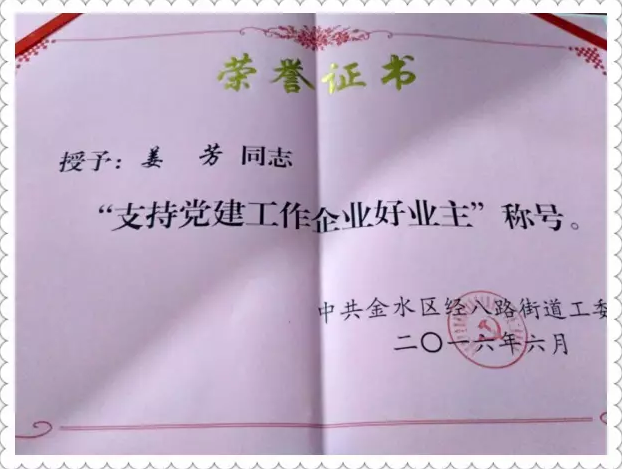 荣誉证书
授予：姜 芳 同志
“支持党建工作企业好业主”称号。
中共金水区经八路街道工委
二〇一六年六月